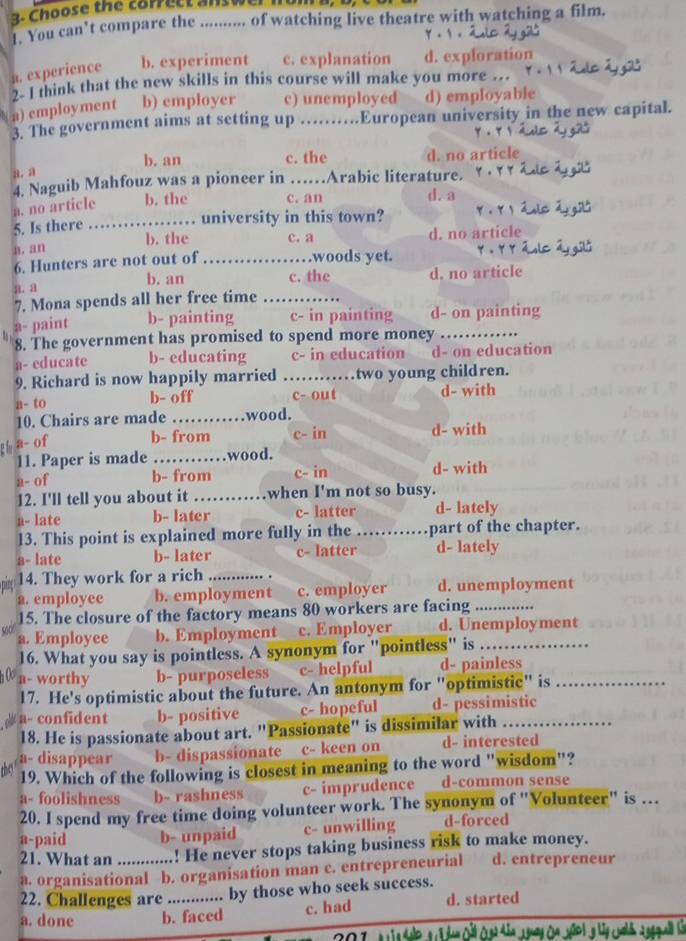 3- Choose the correct answer from a, b, c or d
1. You can't compare the .......... of watching live theatre with watching a film.
ثانوية عامة ٢٠١٠
a. experience b. experiment c. explanation d. exploration
2- I think that the new skills in this course will make you more ... ثانوية عامة ٢٠١١
a) employment b) employer c) unemployed d) employable
3. The government aims at setting up ..........European university in the new capital.
ثانوية عامة ٢٠٢١
a. a b. an c. the d. no article
4. Naguib Mahfouz was a pioneer in ......Arabic literature. ثانوية عامة ٢٠٢٢
a. no article b. the c. an d. a
5. Is there .................. university in this town? ثانوية عامة ٢٠٢١
a. an b. the c. a d. no article
6. Hunters are not out of ..................woods yet. ثانوية عامة ٢٠٢٢
a. a b. an c. the d. no article
7. Mona spends all her free time .............
a- paint b- painting c- in painting d- on painting
8. The government has promised to spend more money .............
a- educate b- educating c- in education d- on education
9. Richard is now happily married ............two young children.
a- to b- off c- out d- with
10. Chairs are made ............wood.
a- of b- from c- in d- with
11. Paper is made ............wood.
a- of b- from c- in d- with
12. I'll tell you about it ............when I'm not so busy.
a- late b- later c- latter d- lately
13. This point is explained more fully in the ............part of the chapter.
a- late b- later c- latter d- lately
14. They work for a rich ............ .
a. employee b. employment c. employer d. unemployment
15. The closure of the factory means 80 workers are facing .............
a. Employee b. Employment c. Employer d. Unemployment
16. What you say is pointless. A synonym for "pointless" is ..................
a- worthy b- purposeless c- helpful d- painless
17. He's optimistic about the future. An antonym for "optimistic" is ..................
a- confident b- positive c- hopeful d- pessimistic
18. He is passionate about art. "Passionate" is dissimilar with ..................
a- disappear b- dispassionate c- keen on d- interested
19. Which of the following is closest in meaning to the word "wisdom"?
a- foolishness b- rashness c- imprudence d-common sense
20. I spend my free time doing volunteer work. The synonym of "Volunteer" is ...
a-paid b- unpaid c- unwilling d-forced
21. What an ............! He never stops taking business risk to make money.
a. organisational b. organisation man c. entrepreneurial d. entrepreneur
22. Challenges are ............ by those who seek success.
a. done b. faced c. had d. started